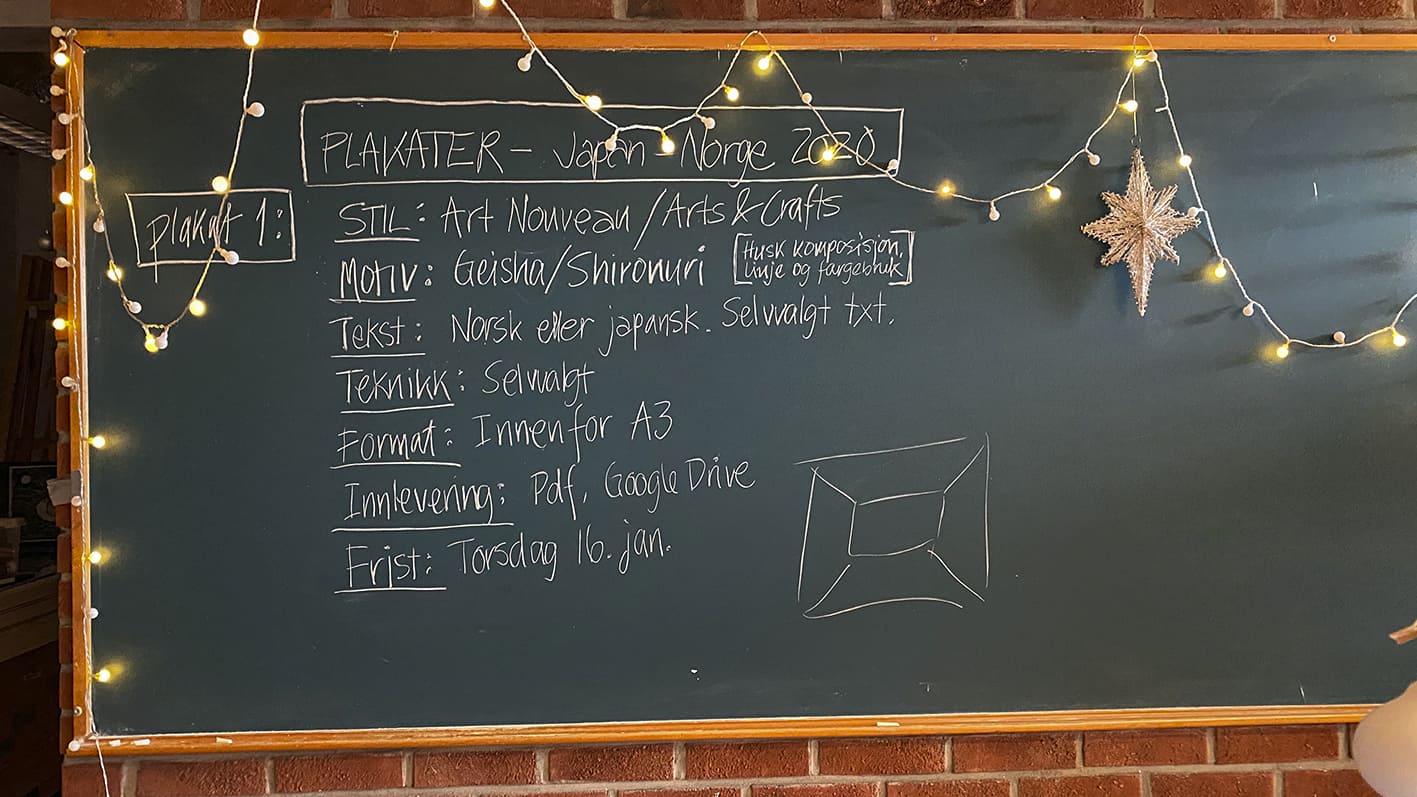 PLAKATER – Japan – Norge 2020
Plakat 1:
STIL: Art Nouveau / Arts & Crafts
Motiv: Geisha/Shironuri
[Husk komposisjon,
linje og fargebruk]
Tekst: Norsk eller japansk. Selvvalgt txt.
Teknikk: Selvvalgt
Format: Innenfor A3
Innlevering: Pdf, Google Drive
Frist: Torsdag 16. jan.